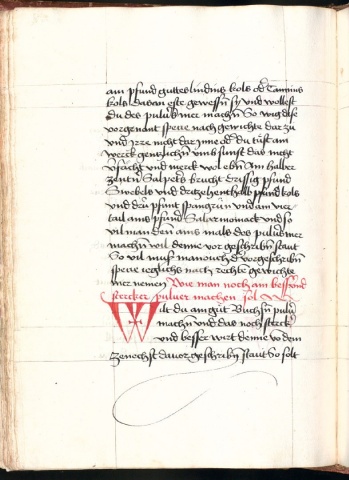 am pfund guttes lindins kols od' Tannins
kols davan este gewessn sy vnd wollest
du des pulu's mer machn So wig dise
vorgenant specie nach gewichte dar zu
vnd jrre nicht dar jnne od' du tust am
werck gentzlichn vmb sunst das nicht
vnd merck wol ebn Am halber
zentn Salpet's brucht drissig pfund
Swebels vnd dretzehenthalb pfund kols
vnd dru pfunt spangrun vnd am vier
tail ams pfund Salarmoniack vnd so
vil man den ams mals des pulu's mer
machn wil denne vor geschribn staut
So vil muss man ouch d' vorgeschribn
specie yeglichs nach rechte gewichte
mer nemen Wie man noch am bessers vnd
stercker puluer machen sol
Wilt du am gut Buchsn pulu'
machn vnd das noch sterck'
vnd besser wirt denne vo dem
zenechst dauor geschribn staut So solt